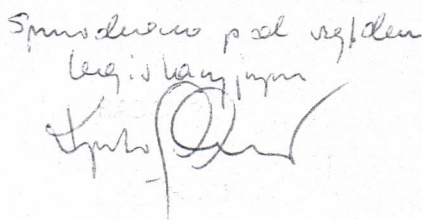 Sprawdzono pod względem
legislacyjnym